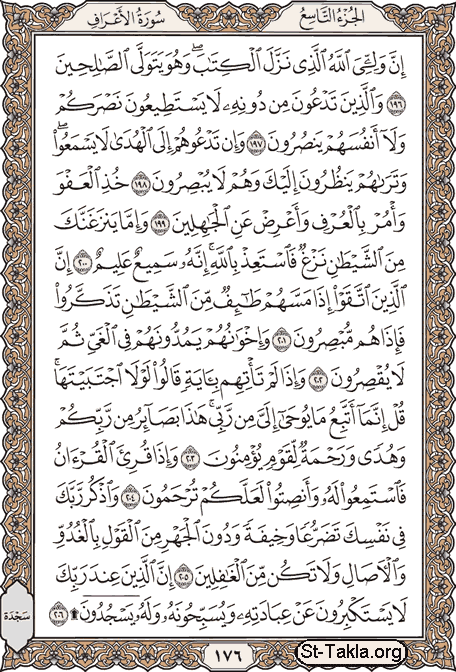 الجزء التاسع
سورة الأعراف
إِنَّ وَلِـِّۧيَ ٱللَّهُ ٱلَّذِي نَزَّلَ ٱلْكِتَٰبَۖ وَهُوَ يَتَوَلَّى ٱلصَّٰلِحِينَ
١٩٦ وَٱلَّذِينَ تَدْعُونَ مِن دُونِهِۦ لَا يَسْتَطِيعُونَ نَصْرَكُمْ
وَلَآ أَنفُسَهُمْ يَنصُرُونَ ١٩٧ وَإِن تَدْعُوهُمْ إِلَى ٱلْهُدَىٰ لَا يَسْمَعُوا۟ۖ
وَتَرَىٰهُمْ يَنظُرُونَ إِلَيْكَ وَهُمْ لَا يُبْصِرُونَ ١٩٨ خُذِ ٱلْعَفْوَ
وَأْمُرْ بِٱلْعُرْفِ وَأَعْرِضْ عَنِ ٱلْجَٰهِلِينَ ١٩٩ وَإِمَّا يَنزَغَنَّكَ
مِنَ ٱلشَّيْطَٰنِ نَزْغٌ فَٱسْتَعِذْ بِٱللَّهِۚ إِنَّهُۥ سَمِيعٌ عَلِيمٌ ٢٠٠ إِنَّ
ٱلَّذِينَ ٱتَّقَوْا۟ إِذَا مَسَّهُمْ طَٰٓئِفٌ مِّنَ ٱلشَّيْطَٰنِ تَذَكَّرُوا۟
فَإِذَا هُم مُّبْصِرُونَ ٢٠١ وَإِخْوَٰنُهُمْ يَمُدُّونَهُمْ فِي ٱلْغَيِّ ثُمَّ
لَا يُقْصِرُونَ ٢٠٢ وَإِذَا لَمْ تَأْتِهِم بِـَٔايَةٍ قَالُوا۟ لَوْلَا ٱجْتَبَيْتَهَاۚ
قُلْ إِنَّمَآ أَتَّبِعُ مَا يُوحَىٰٓ إِلَيَّ مِن رَّبِّيۚ هَٰذَا بَصَآئِرُ مِن رَّبِّكُمْ
وَهُدًى وَرَحْمَةٌ لِّقَوْمٍ يُؤْمِنُونَ ٢٠٣ وَإِذَا قُرِئَ ٱلْقُرْءَانُ
فَٱسْتَمِعُوا۟ لَهُۥ وَأَنصِتُوا۟ لَعَلَّكُمْ تُرْحَمُونَ ٢٠٤ وَٱذْكُر رَّبَّكَ
فِي نَفْسِكَ تَضَرُّعًا وَخِيفَةً وَدُونَ ٱلْجَهْرِ مِنَ ٱلْقَوْلِ بِٱلْغُدُوِّ
وَٱلْءَاصَالِ وَلَا تَكُن مِّنَ ٱلْغَٰفِلِينَ ٢٠٥ إِنَّ ٱلَّذِينَ عِندَ رَبِّكَ
لَا يَسْتَكْبِرُونَ عَنْ عِبَادَتِهِۦ وَيُسَبِّحُونَهُۥ وَلَهُۥ يَسْجُدُونَ ۩ ٢٠٦
سَجْدَة
١٧٦
St-Takla.org